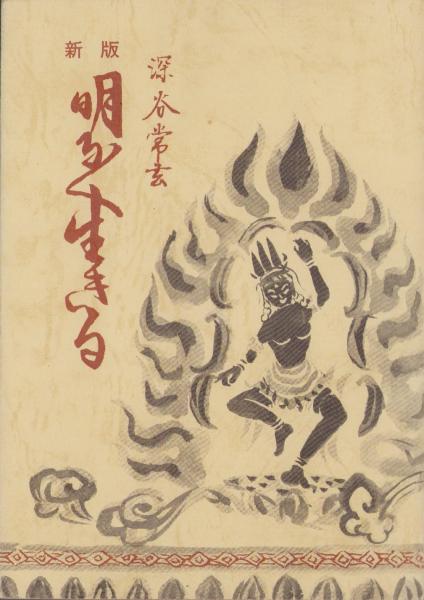 新版
明るく生きる
深谷常玄